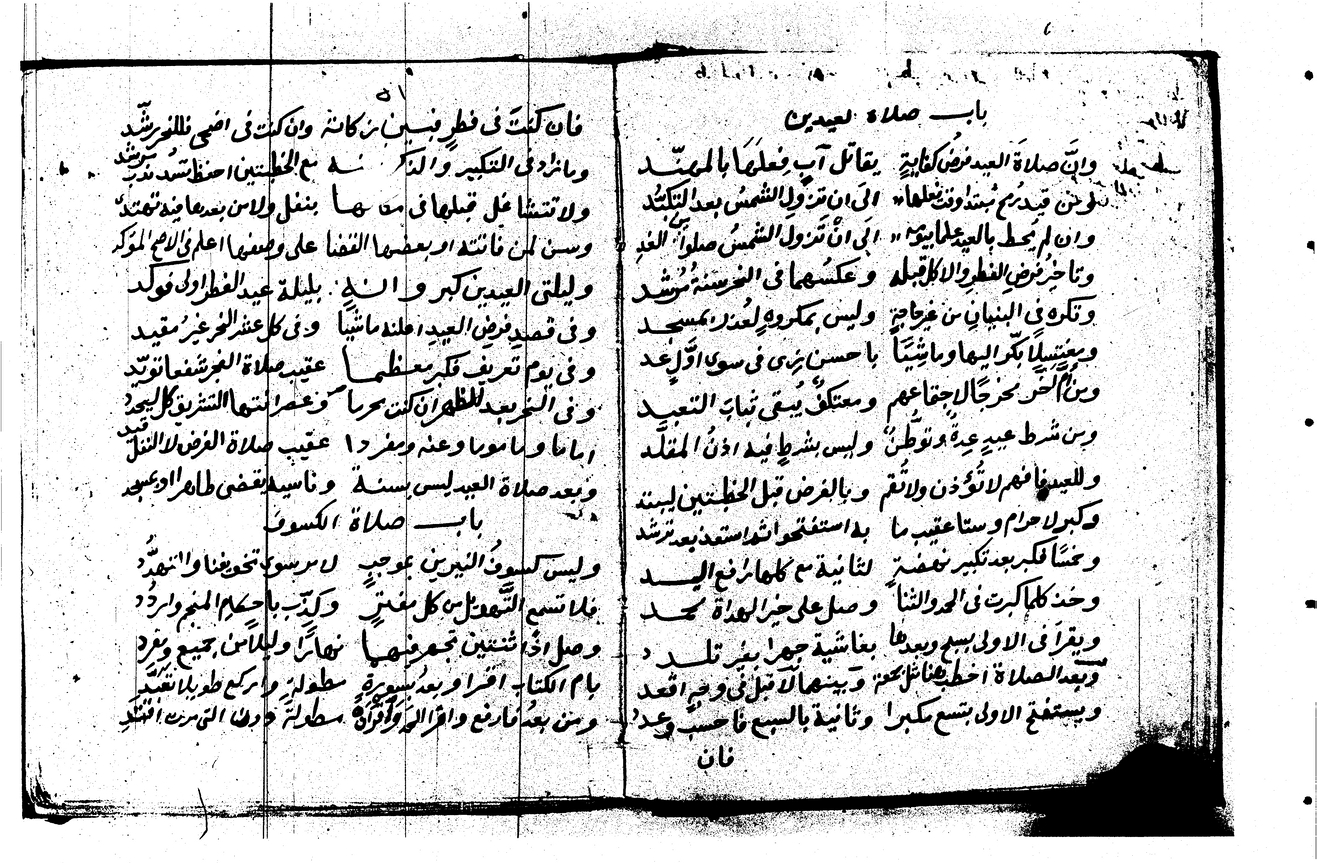 باب صلاة العيدين
وإنَّ صلاة العيد فرضُ كفايةٍ يقاتل آبٍ فعلَهَا بالمهنّد
قيد رمح مبتدا وقت فعلها الى ان تزول الشمسُ بعد التكبّد
وان لم يحط بالعيد علما بيومه الى انْ تزول الشمسُ صلوا من الغدِ
وتاخيرُ فرض الفطر والاكل قبله وعكسُهما في النحر سنةُ مُرْشد
وتكره في البنيان من غير حاجةٍ وليس بمكروهٍ لعُذرك بمسجد
ومغتسلا بكّر اليها وماشيًا باحسن زي في سوى اوّل عد
ومن أمَّ اخر مخرجًا لاجتماعهم ومعتكفٌ يُبقي ثيابَ التعبد
ومن شرط عيدٍ عِدةٌ وتوطُّنٌ وليس بشرطٍ فيه اذنُ المقلَّد
وللعيد فافهم لا تؤذن ولا تُقم وبالفرض قبل الخطبتين ليبتد
وكبر لاحرام وستا عقيب ما به استفتحوا ثم استعذ بعد ترشد
وخمسًا فكبر بعد تكبير نهضةٍ لثانية مع كلها ارفع اليد
وخذ كلما كبرت في الحمد والثنا وصل على خير الهداة محمد
ويقرا في الاولى بسبح وبعدها بغاشية جهرا بغير تلدد
وبعد الصلاة اخطب وبينهما لا قبل في وجهٍ اقعد
ويستفتح الاولى بتسع مكبرا وثانية بالسبع فاحسب وعدد
فان
٥١
فان كنتَ في فطرٍ فبين زكاته وان كنت في اضحى فللنحر رشّد
وما زاد في التكبير والذكر سنة مع الخطبتين احفظ
ولا تتشاغل قبلها في مقامها بنفل ولا من بعدها فيه تهتد
وسن لمن فاتته او بعضها القضا على وصفها اعلم في الاصح المؤكد
وليلتي العيدين كبر بليلة عيد الفطر اولى فوكد
وفي قصدِ فرضِ العيدِ اعلنه ماشيًا وفي كل عشر النحر غيرُ مقيد
وفي يوم تعريفٍ فكبر معظما عقيب صلاة الفجر شفعا توبّد
وفي النحر بعد الظهر ان كنت محرما وعصر انتها التشريق كل ليحد
اماما وماموما وعنه ومفردا عقيب صلاة الفرض لا النفل قيد
وبعد صلاة العيد ليس بسنة وناسيه يقضي طاهرا او بمسجد
باب صلاة الكسوف
وليس كسوفُ النيرين بموجبٍ لامر سوى تخويفنا والتهدُّد
فلا تسمع التهويل من كل مفترٍ وكذّب باحكام المنجم واردد
وصل اذًا ثنتين تجهر فيهما نهارًا وليلا من جميع ومفرد
بام الكتاب اقرا وبعدُ بسورةٍ مطولةٍ واركع طويلا تعبّد
ومن بعدُ فارفع واقرا مطولة دون التي مرت اقتد